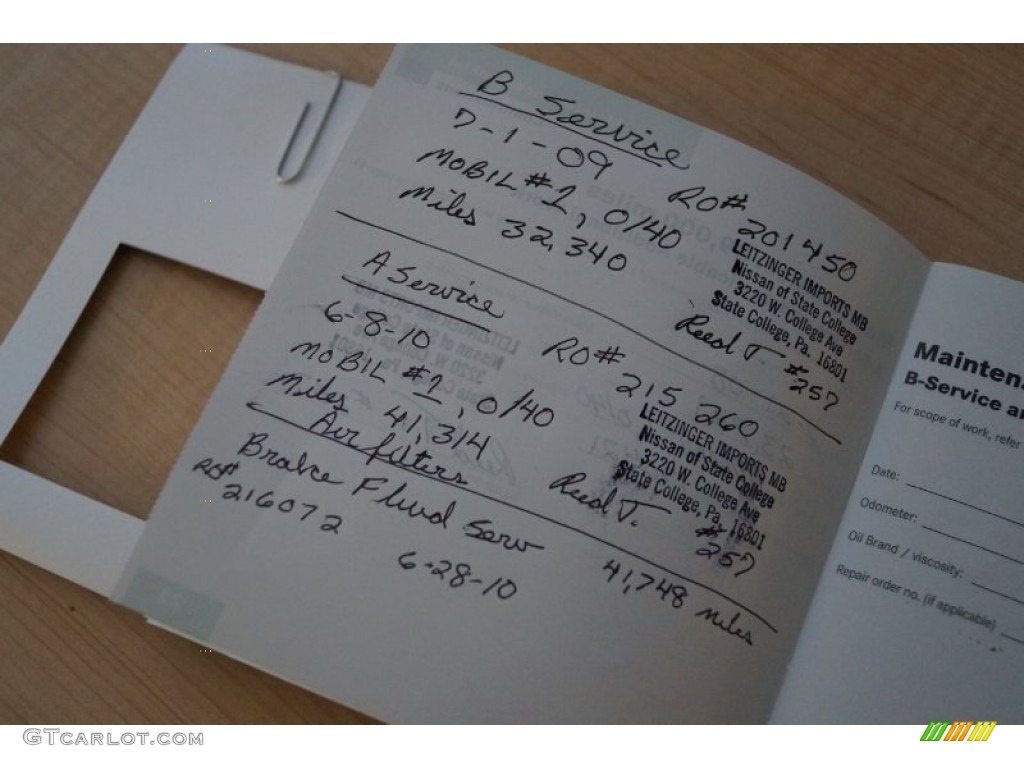 B Service
7-1-09 RO# 201450
MOBIL #1, 0/40
Miles 32,340
LEITZINGER IMPORTS MB
Nissan of State College
3220 W. College Ave
State College, Pa. 16801
Reed T. #257
A Service
6-8-10 RO# 215 260
MOBIL #1, 0/40
Miles 41,314
Air filters
LEITZINGER IMPORTS MB
Nissan of State College
3220 W. College Ave
State College, Pa. 16801
Reed T. #257
Brake Fluid Serv 41,748 miles
RO# 216072 6-28-10
Mainten
B-Service a
For scope of work, refer
Date:
Odometer:
Oil Brand / viscosity:
Repair order no. (if applicable)
GTCARLOT.COM